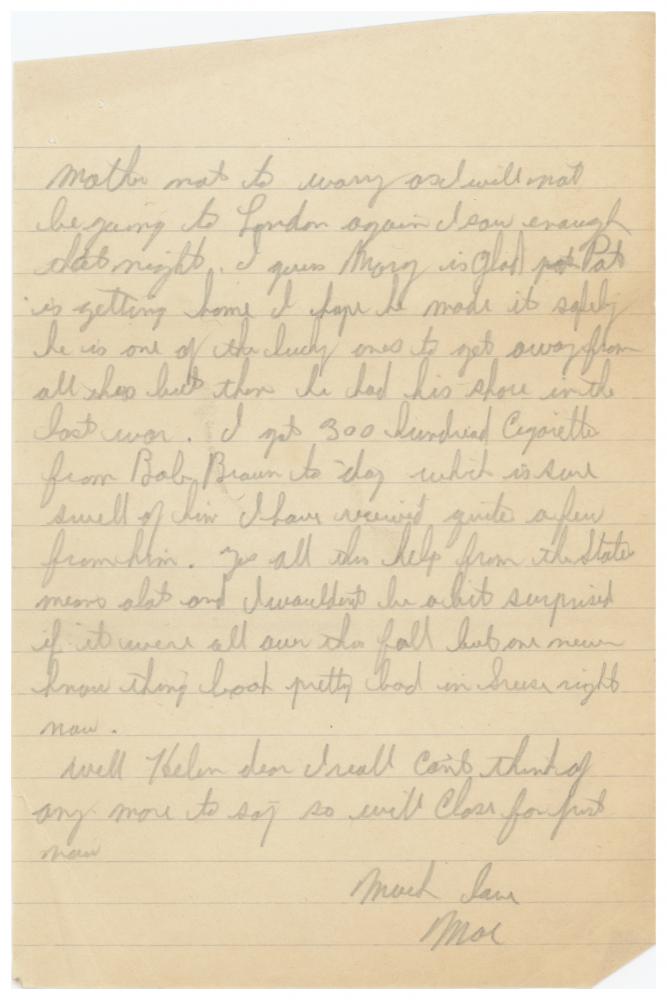 Mother not to worry as I will not
be going to London again I saw enough
that night. I guess Marg is Glad Pat
is getting home I hope he made it safely
he is one of the lucky ones to get away from
all this but then he had his share in the
last war. I got 300 hundred Cigarette
from Bob Braun to day which is sure
swell of him I have received quite a few
from him. Yes all this help from the State
means alot and I wouldent be a bit surprised
if it were all over this fall but one never
know thing look pretty bad in right
now.
Well Helen dear I reall can't think of
any more to say so will Close for just
now
Much love
Mac